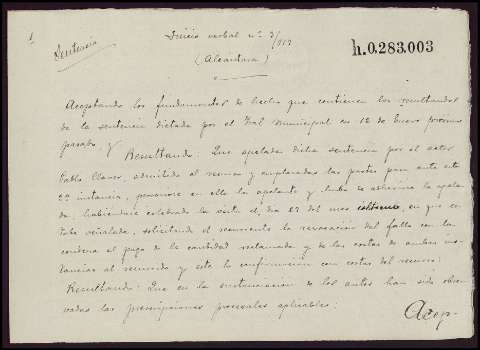 Juicio verbal nº 3/913
h.0.283.003
Sentencia
(Alcántara)
Aceptando los fundamentos de hecho que contienen los resultandos
de la sentencia dictada por el Tral Municipal en 12 de Enero próximo
pasado, y
Resultando: Que apelada dicha sentencia por el actor
Pablo admitido el recurso y emplazadas las partes para ante esta
2ª instancia, personóse en ella la apelante y hubo de adherirse la apela-
da, habiéndose celebrado la vista el día 27 del mes en que es-
taba señalada, solicitando el recurrente la revocación del fallo con la
condena al pago de la cantidad reclamada y de las costas de ambas ins-
tancias al recurrido y este la confirmación con costas del recurso:
Resultando: Que en la sustanciación de los autos han sido obser-
vadas las prescripciones procesales aplicables:
Acep-